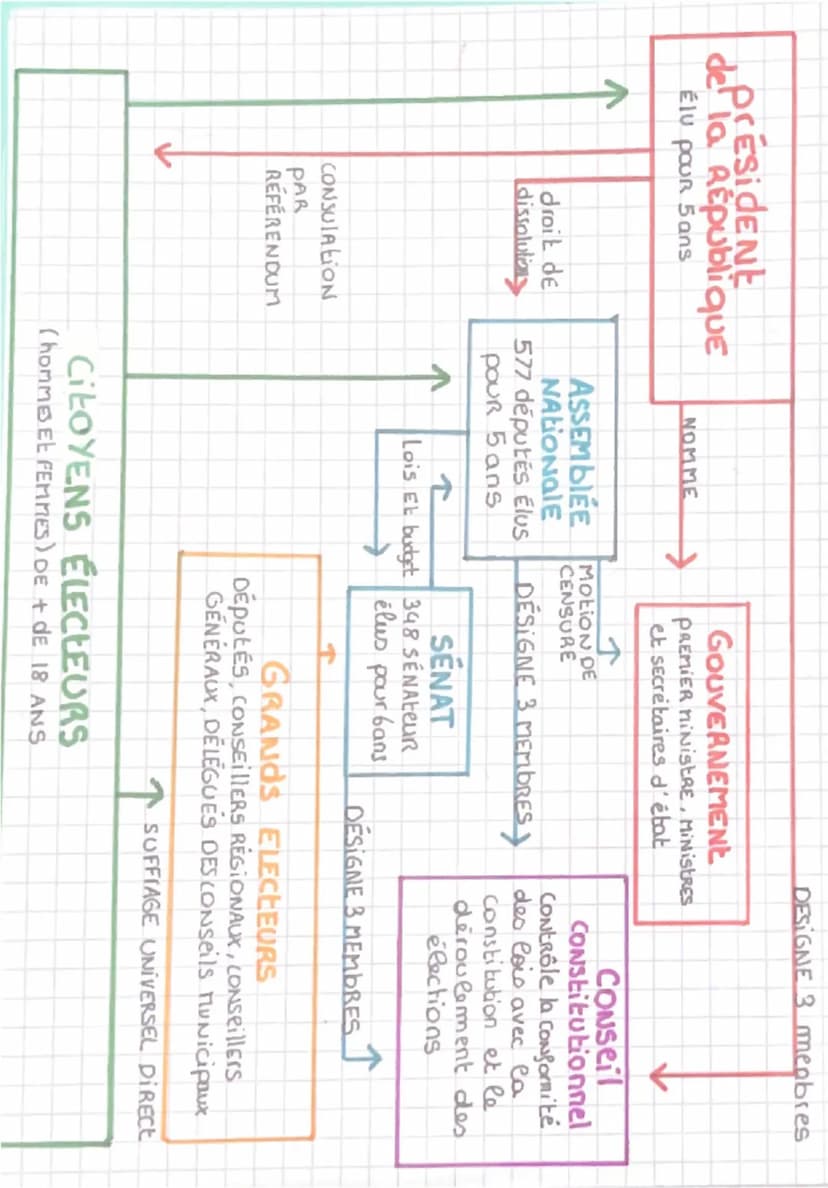 DÉSIGNE 3 membres
PRÉSIDENT
de la RÉpubliQUE
Élu pour 5 ans
NOMME
GOUVERNEMENT
PREMIER MINISTRE, MINISTRES
et secrétaires d'état
droit de
dissolution
ASSEMBLÉE
NATIONALE
577 députés élus
pour 5 ans
MOTION DE
CENSURE
DÉSIGNE 3 MEMBRES
CONSEIL
CONSTITUTIONNEL
CONTRÔLE la conformité
des lois avec la
constitution et le
déroulement des
élections
Lois Et budget
SÉNAT
348 SÉNATEUR
élus pour 6 ans
DÉSIGNE 3 MEMBRES
CONSULATION
PAR
RÉFÉRENDUM
GRANDS ELECTEURS
DÉPUTÉS, CONSEILLERS RÉGIONAUX, CONSEILLERS
GÉNÉRAUX, DÉLÉGUÉS DES CONSEILS MUNICIPAUX
SUFFIAGE UNIVERSEL DIRECT
CITOYENS ÉLECTEURS
(hommes Et FEMMES) DE + de 18 ANS